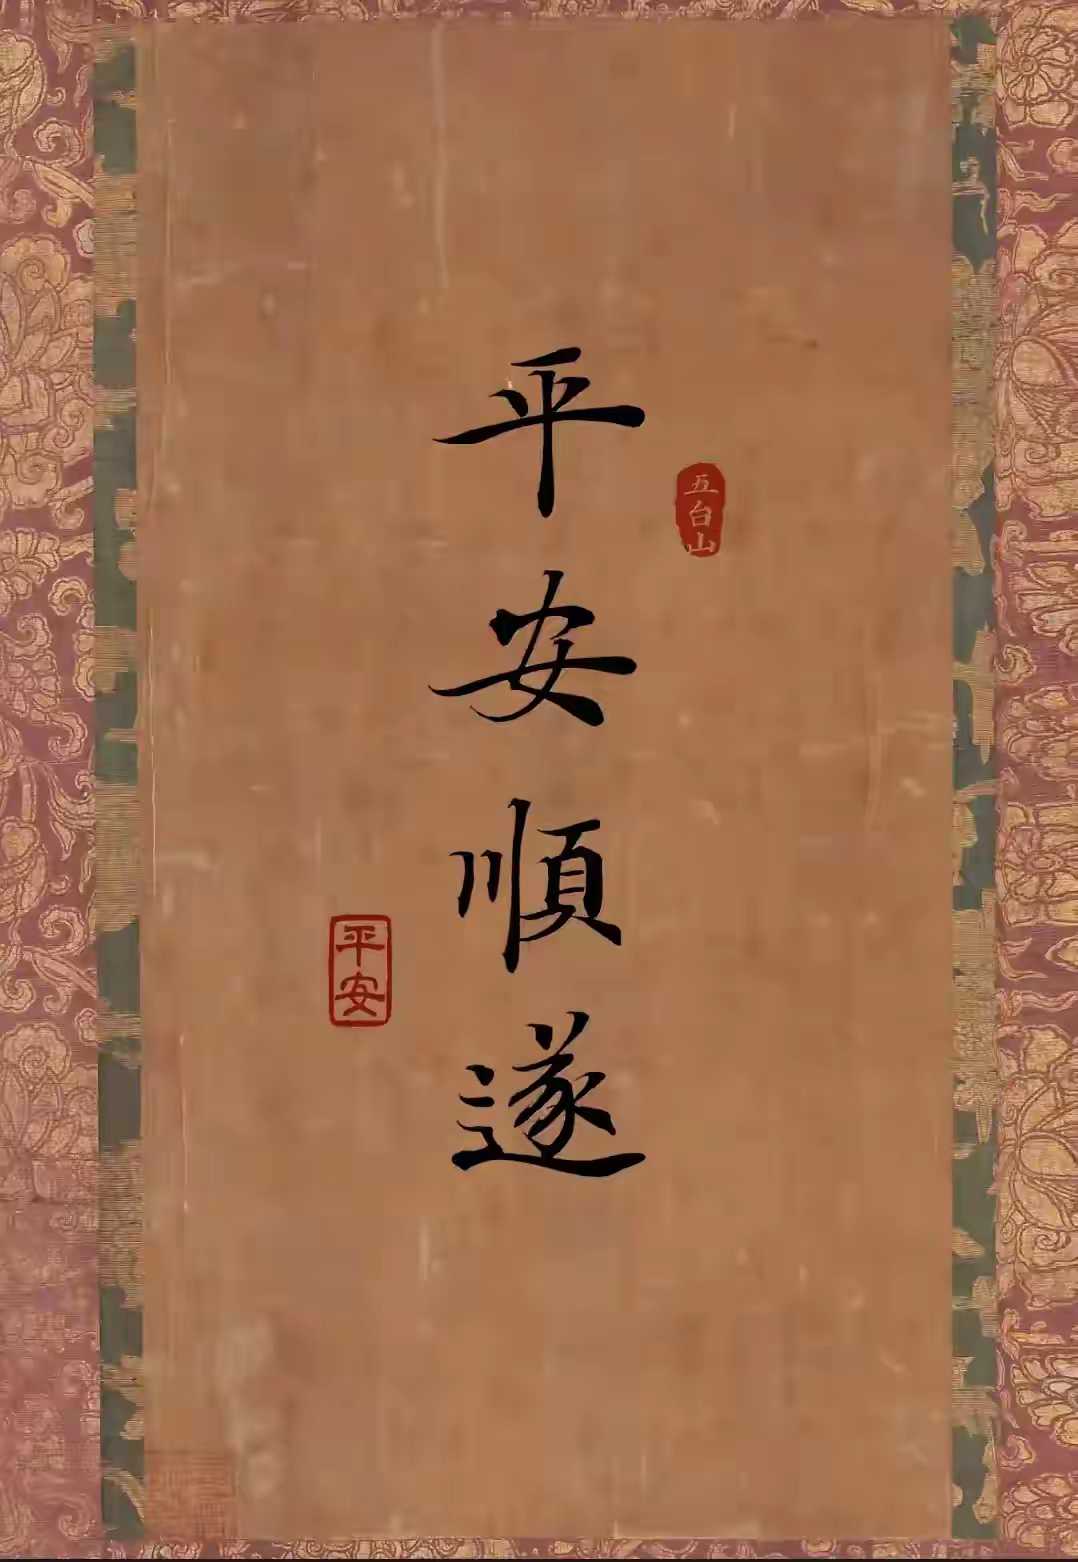 平安順遂
五台山
平安